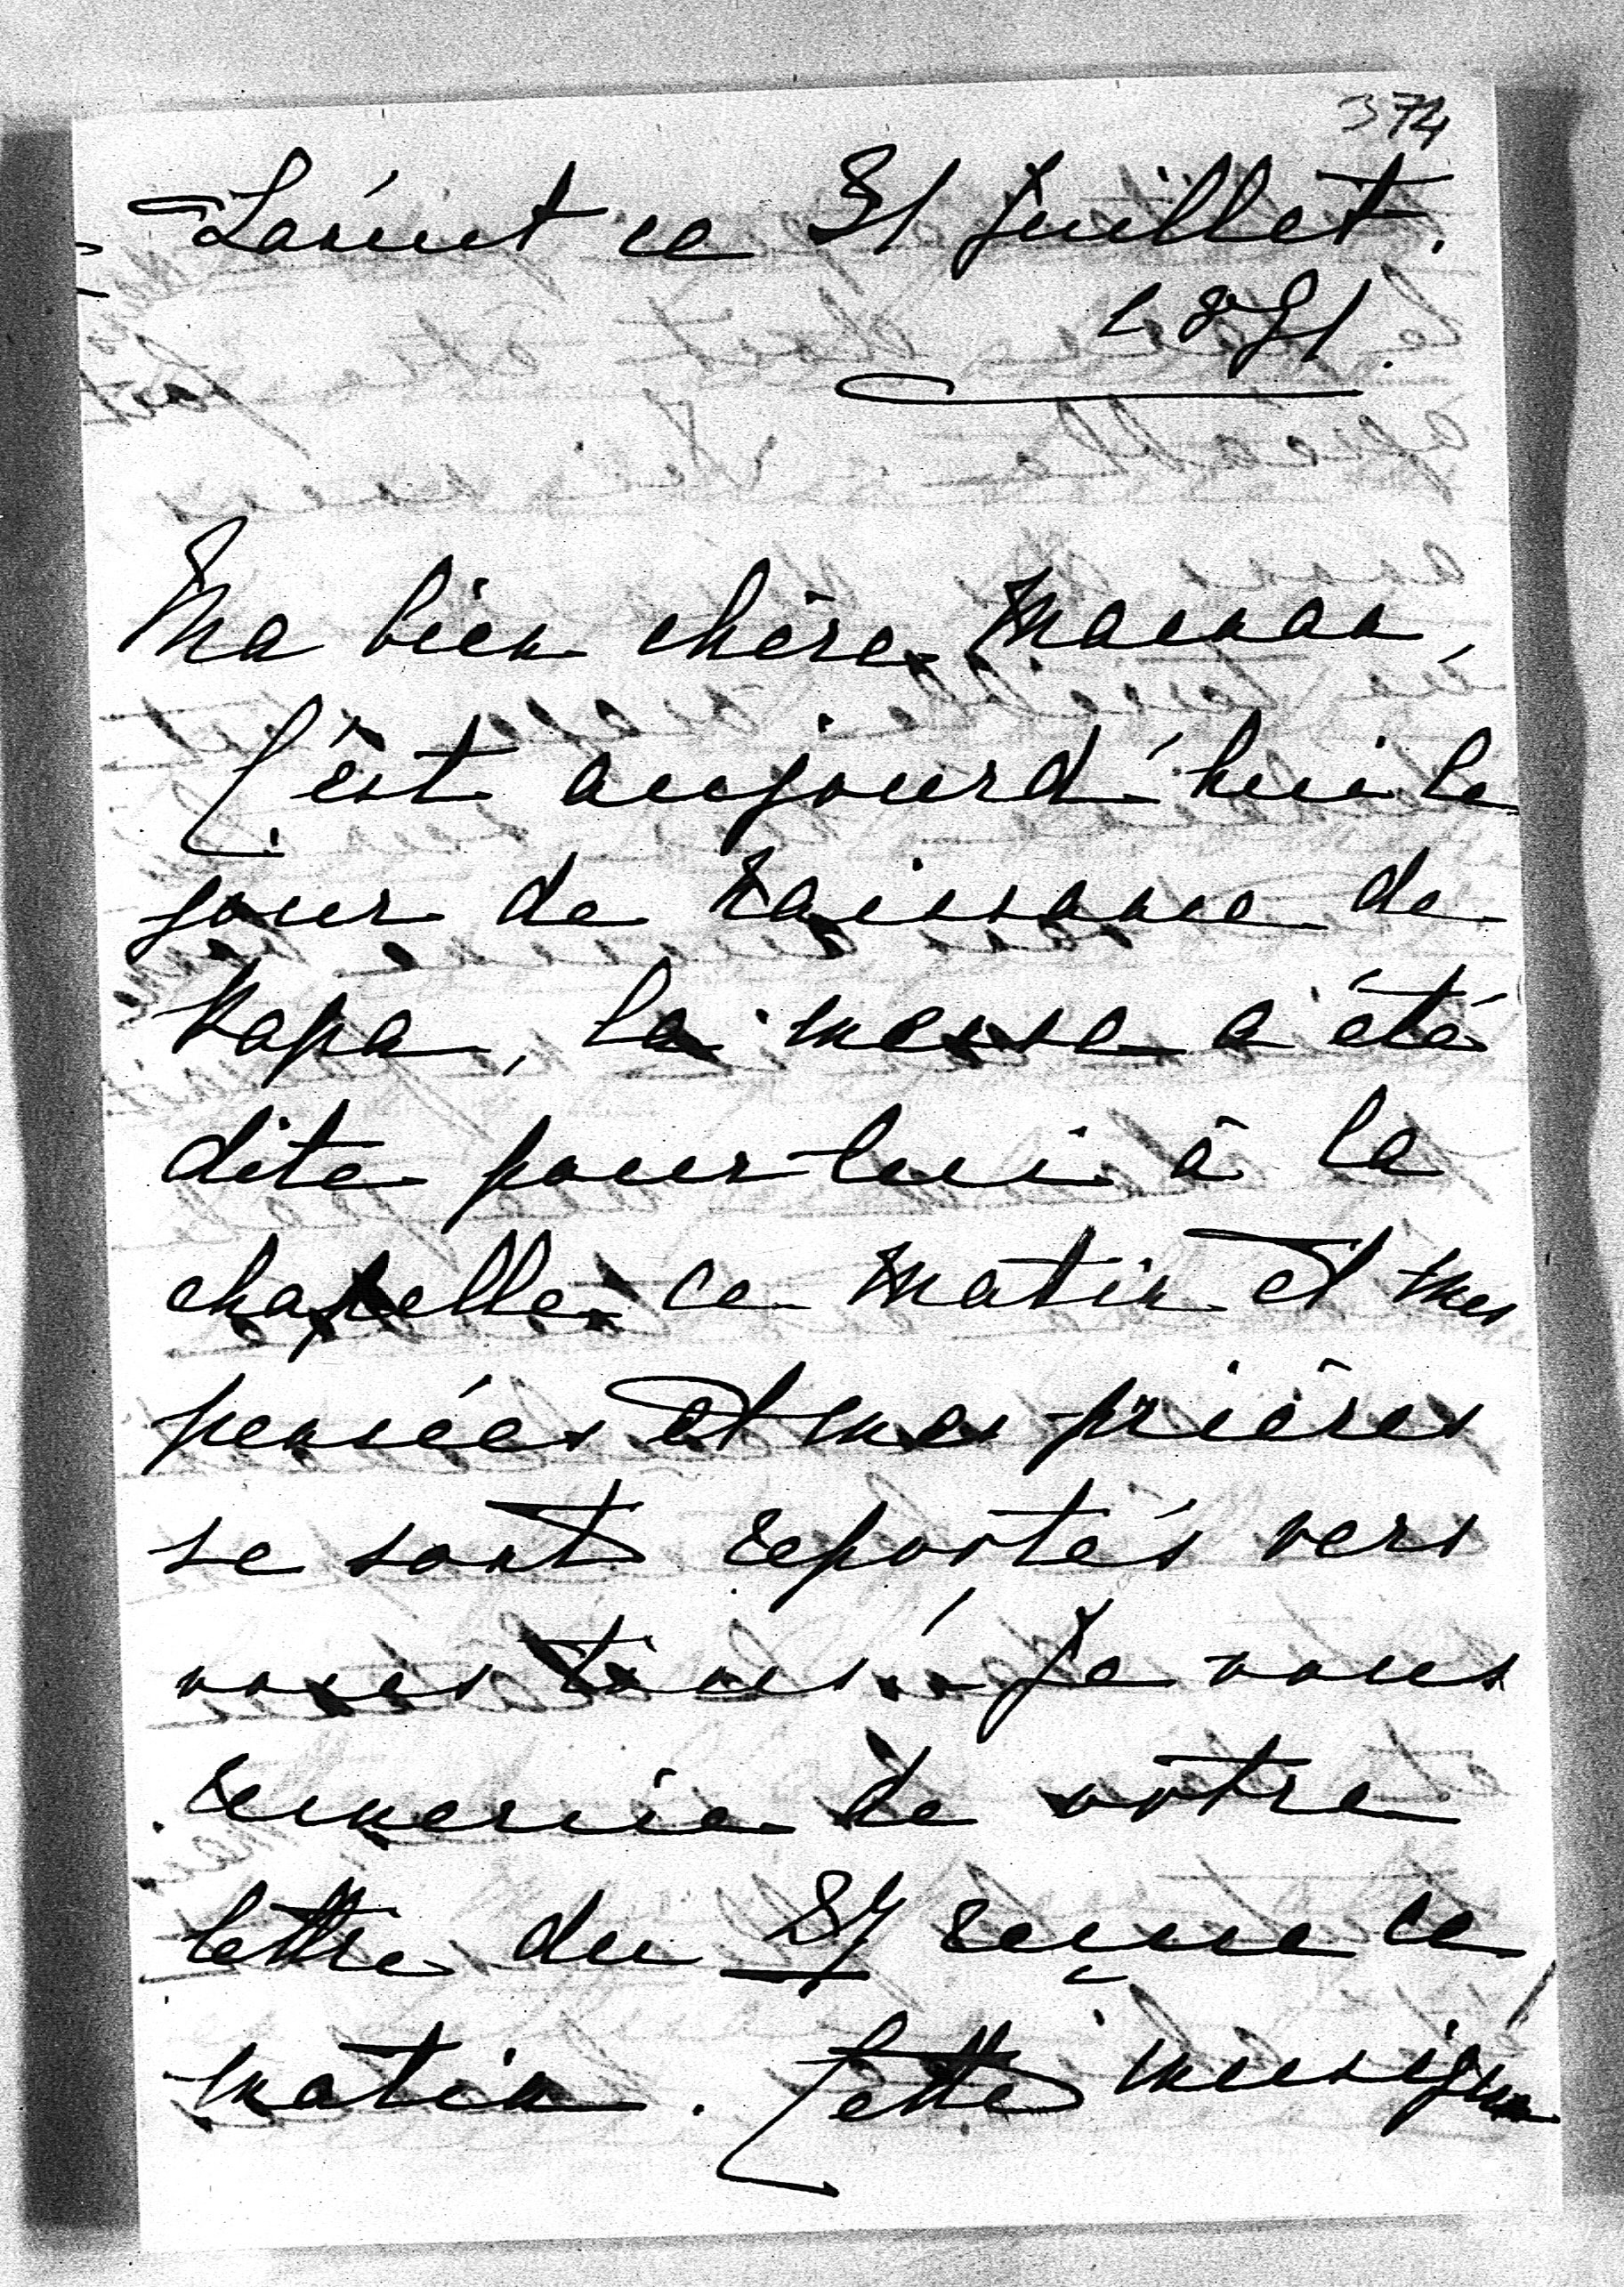 374
ce 31 Juillet.
1891.
Ma bien chère Maman,
C'est aujourd'hui le
jour de naissance de
Papa, la messe a été
dite pour lui à la
chapelle ce matin et mes
pensées et mes prières
se sont reportés vers
vous tous. Je vous
remercie de vôtre
lettre du 27 reçue ce
matin. Cette musique